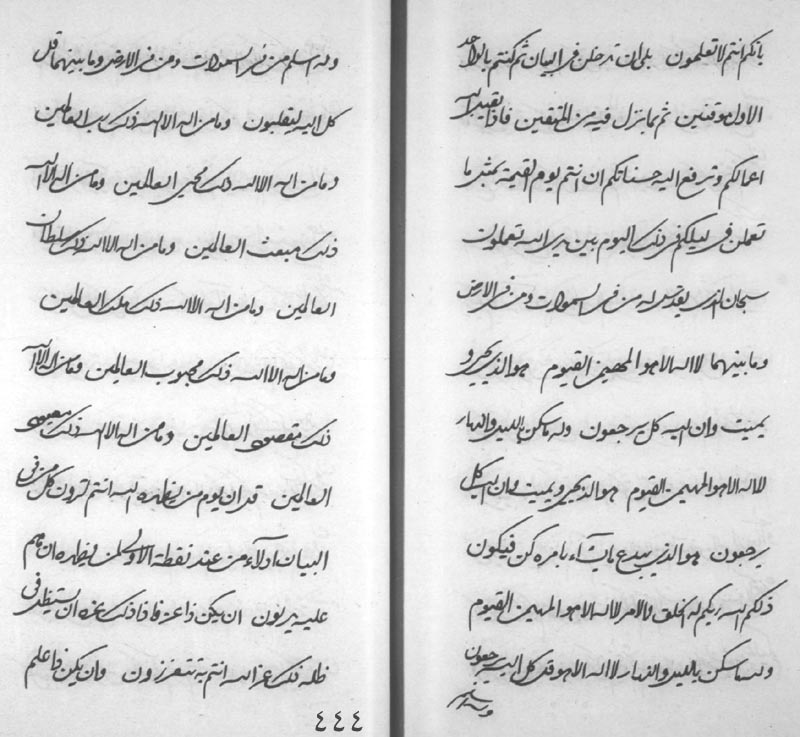 بانكم انتم لا تعلمون بلى ان تدخلن في البيان ثم كنتم بالواحد
الاول موقنين ثم بما نزل فيه من المتقين فاذا يقبل الله
اعمالكم وترفع اليه حسناتكم ان انتم يوم القيمة بمثل ما
تعملن في ليلكم في ذلك اليوم بين يدي الله تعملون
سبحان الذي يقدس له من في السموات ومن في الارض
وما بينهما لا اله الا هو المهيمن القيوم هو الذي يحيي و
يميت وان اليه كل يرجعون وله ما سكن بالليل والنهار
لا اله الا هو المهيمن القيوم هو الذي يحيي ويميت وان اليه كل
يرجعون هو الذي يبدع ما يشاء بامره كن فيكون
ذلكم الله ربكم له الخلق والامر لا اله الا هو المهيمن القيوم
وله ما سكن بالليل والنهار لا اله الا هو قل كل اليه يرجعون
وله اسلم من في السموات ومن في الارض وما بينهما قل
كل اليه لينقلبون وما من اله الا الله ذلك رب العالمين
وما من اله الا الله ذلك محيي العالمين وما من اله الا الله
ذلك مبعث العالمين وما من اله الا الله ذلك سلطان
العالمين وما من اله الا الله ذلك ملك العالمين
وما من اله الا الله ذلك محبوب العالمين وما من اله الا الله
ذلك مقصود العالمين وما من اله الا الله ذلك
العالمين قل ان يوم من يظهره الله انتم لترون كل من في
البيان ادلاء من عند نقطة الاولى لمن يظهره ان هم
عليه يردون ان يكن ذا عز فاذا ذلك عزه ان يستظل في
ظله ذلك عز الله انتم به تتعززون وان يكن ذا علم
٤٤٤